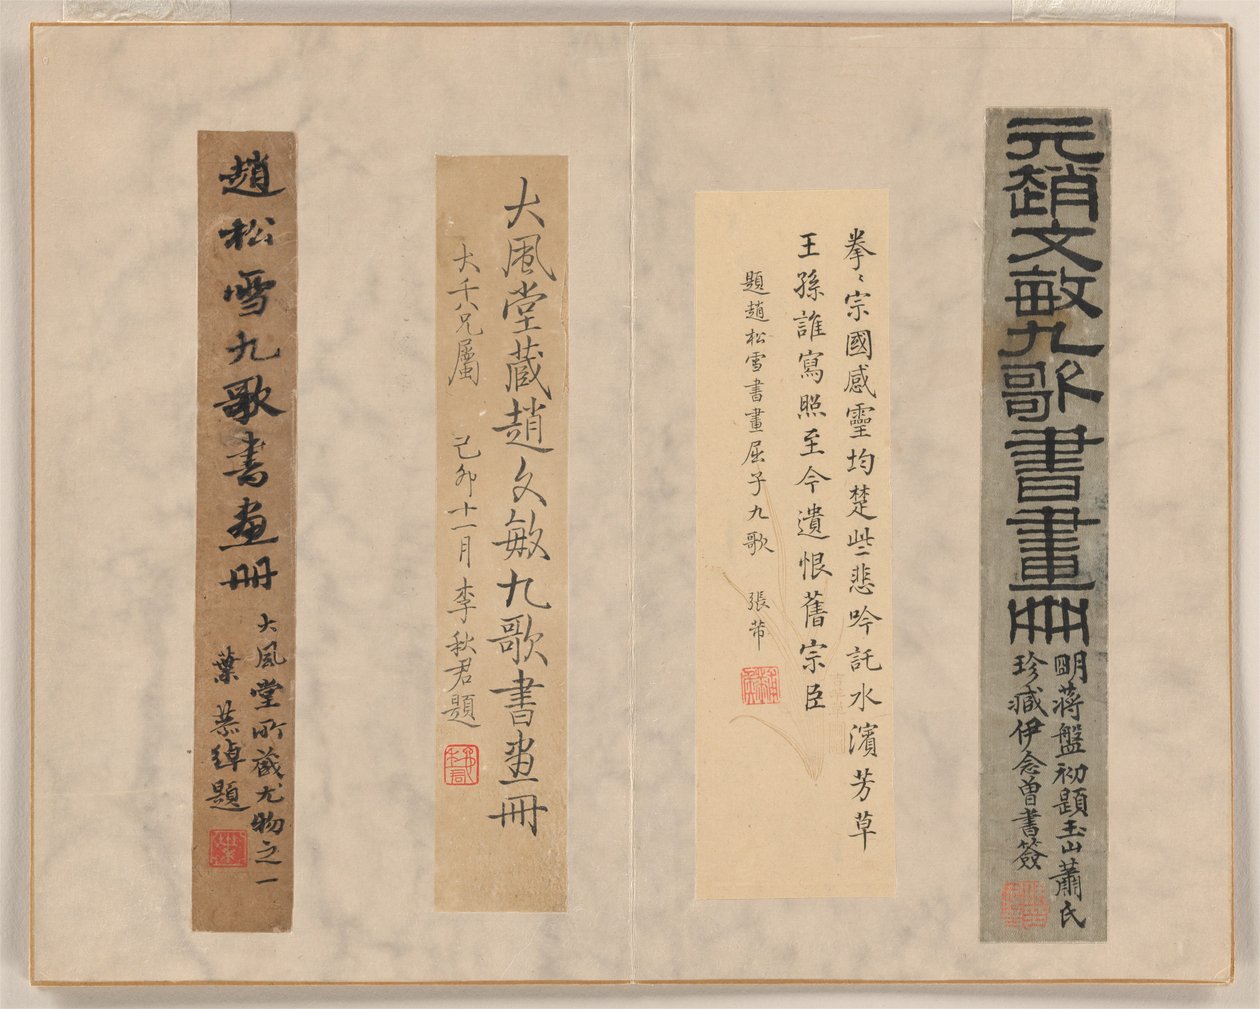 元趙文敏九歌書畫冊
明蔣盤初題玉山蕭氏
珍藏伊念曾書簽
拳〻宗國感靈均楚些悲吟託水濱芳草
王孫誰寫照至今遺恨舊宗臣
題趙松雪書畫屈子九歌 張芾
大風堂藏趙文敏九歌書畫冊
大千八兄屬 己卯十一月李秋君題
趙松雪九歌書畫冊
大風堂所藏尤物之一
葉恭綽題